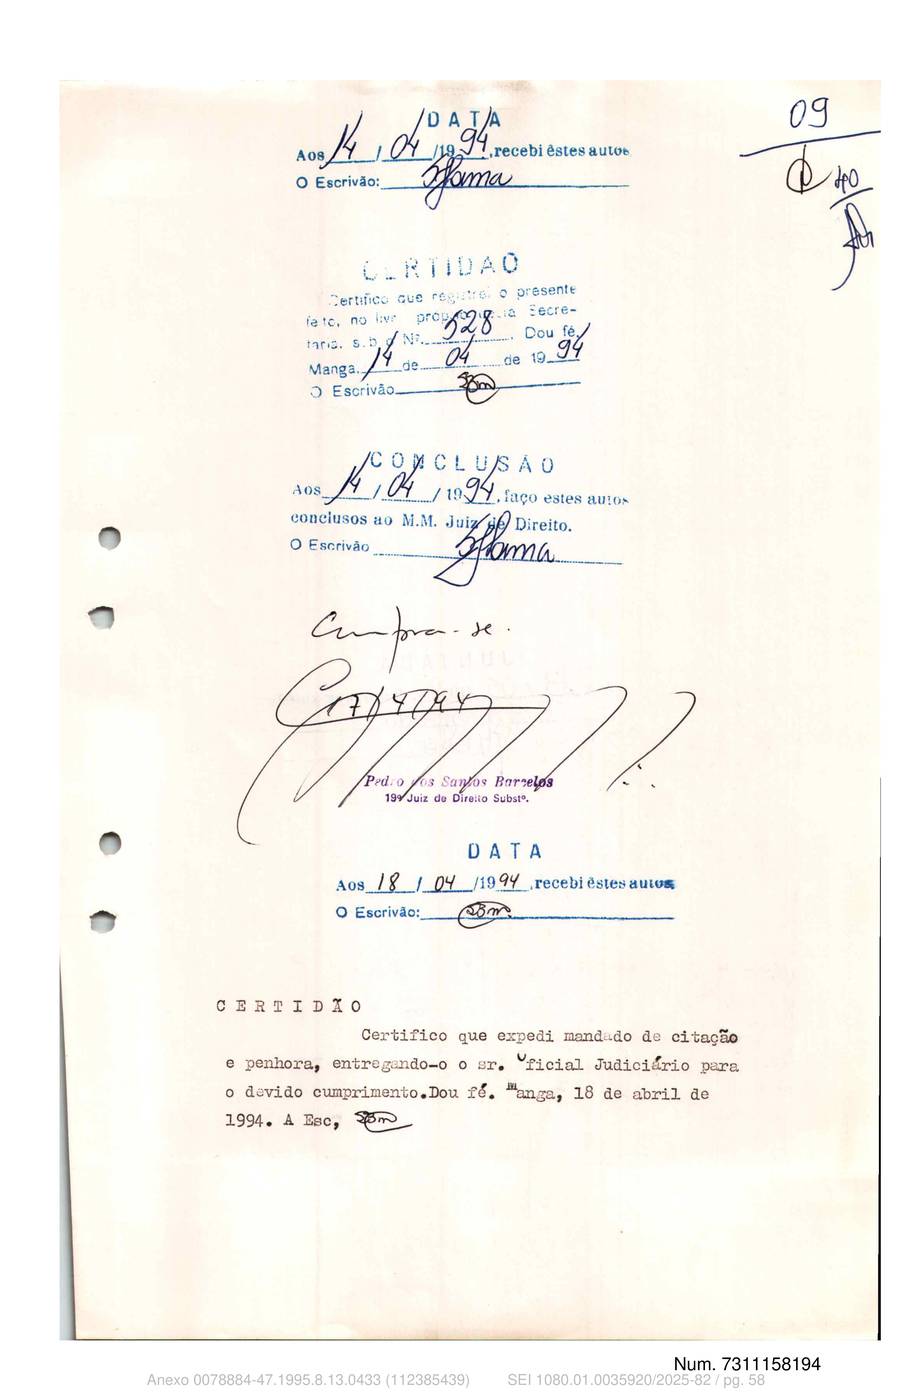 09
40
DATA
Aos 14 / 04 /1994, recebi êstes autos
O Escrivão:
CERTIDAO
Certifico que registrei o presente
feito, no livr propr ia Secre-
taria, s.b o Nº. 528. Dou fé.
Manga, 14 de 04 de 1994
O Escrivão
CONCLUSÃO
Aos 14 / 04 / 1994, faço estes autos
conclusos ao M.M. Juiz de Direito.
O Escrivão
Cumpra-se.
17/4/94
Pedro dos Santos Barcelos
19º Juiz de Direito Substº.
DATA
Aos 18 / 04 /1994, recebi êstes autos
O Escrivão:
CERTIDÃO
Certifico que expedi mandado de citação
e penhora, entregando-o o sr. Oficial Judiciário para
o devido cumprimento.Dou fé. Manga, 18 de abril de
1994. A Esc,
Num. 7311158194
Anexo 0078884-47.1995.8.13.0433 (112385439) SEI 1080.01.0035920/2025-82 / pg. 58